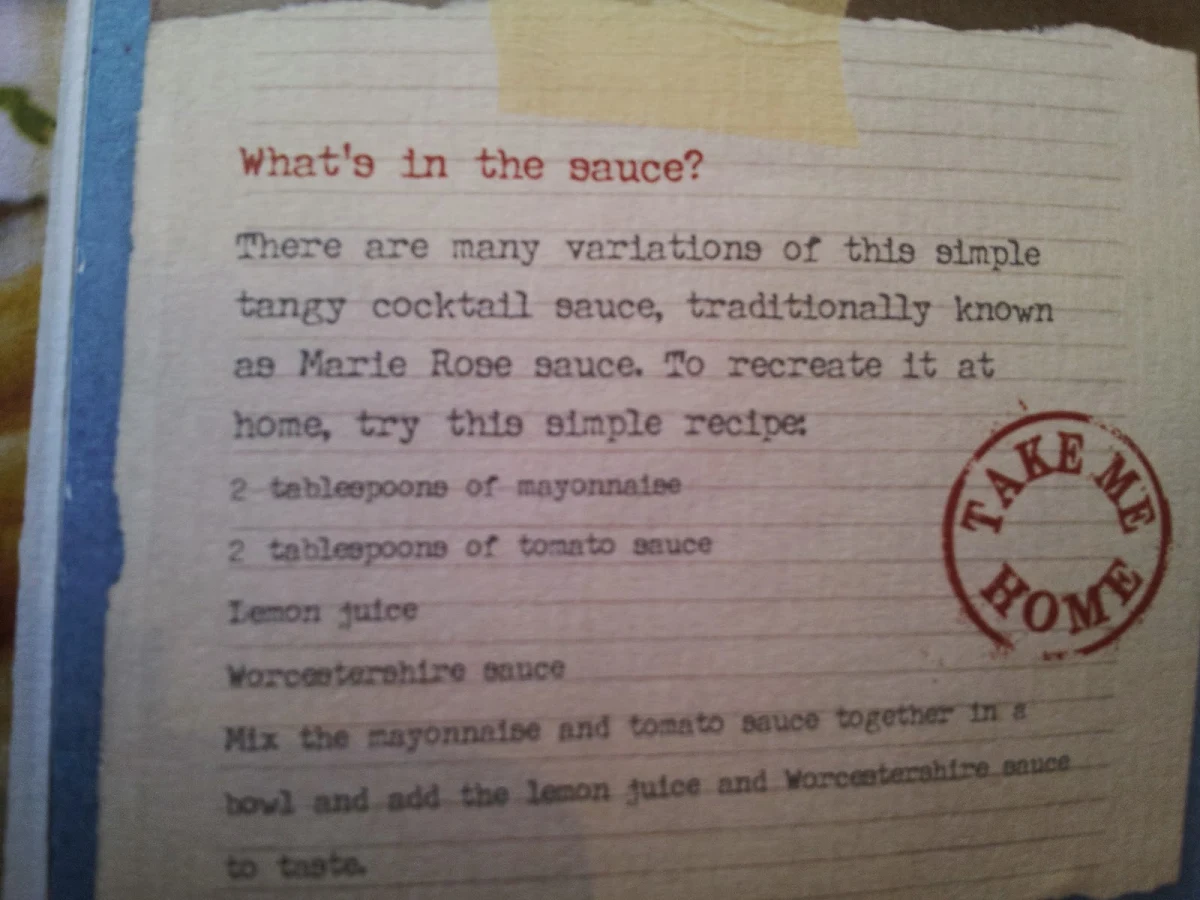 What's in the sauce?
There are many variations of this simple
tangy cocktail sauce, traditionally known
as Marie Rose sauce. To recreate it at
home, try this simple recipe:
2 tablespoons of mayonnaise
2 tablespoons of tomato sauce
Lemon juice
Worcestershire sauce
Mix the mayonnaise and tomato sauce together in a
bowl and add the lemon juice and Worcestershire sauce
to taste.
TAKE ME
HOME